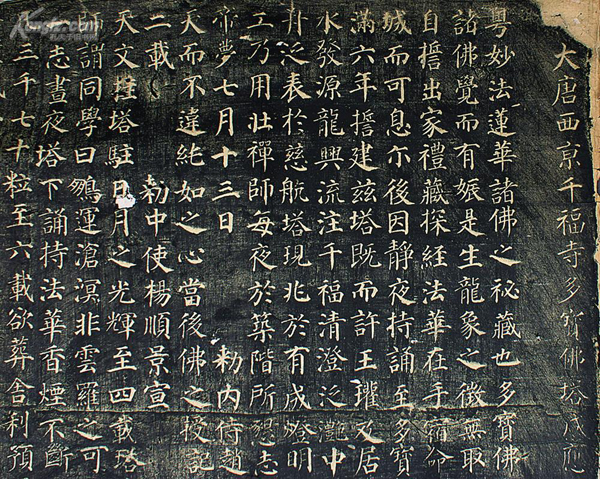 大唐西京千福寺多寶佛塔感應
粵妙法蓮華諸佛之秘藏也多寶佛
諸佛覺而有娠是生龍象之徵無取
自誓出家禮藏探經法華在手宿命
城而可息尓後因靜夜持誦至多寶
滿六年誓建茲塔既而許王瓘及居
水發源龍興流注千福清澄泛灧中
舟泛表於慈航塔現兆於有成燈明
工乃用壯禪師每夜於築階所懇志
帝夢七月十三日 勅內侍趙
天而不違純如之心當後佛之授記
二載 勅中使楊順景宣
天文挂塔駐日月之光輝至四載塔
師謂同學曰鵬運滄溟非雲羅之可
志晝夜塔下誦持法華香煙不斷
三千七十粒至六載欲葬舍利預